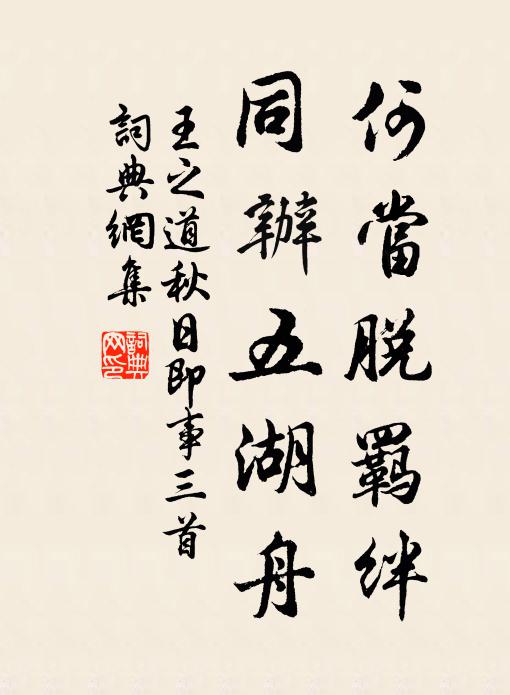 何當脫羈絆
同辦五湖舟
王之道秋日即事三首
詞典網集
詞典网印